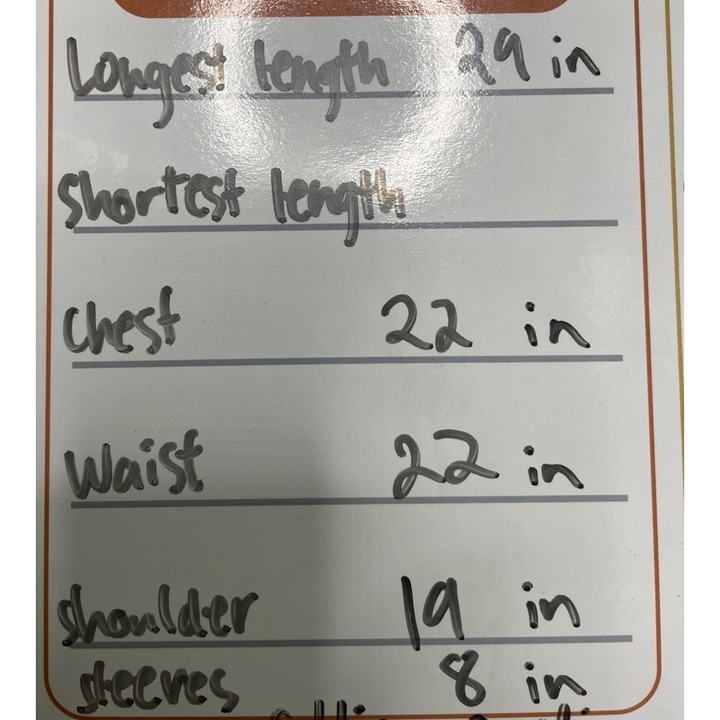 Longest length 29 in
Shortest length
Chest 22 in
Waist 22 in
shoulder 19 in
sleeves 8 in